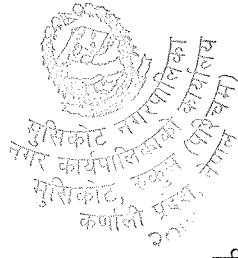 मुसिकोट नगरपालिका
नगर कार्यपालिकाको कार्यालय
मुसिकोट, रुकुम (पश्चिम)
कर्णाली प्रदेश, नेपाल